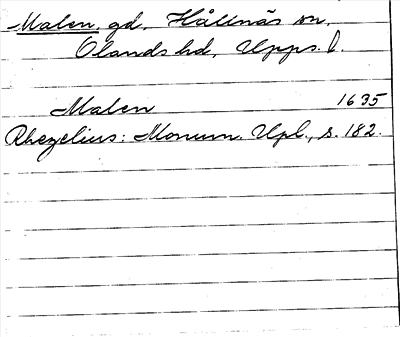 Malen, gd, Hållnäs sn,
Olands hd, Upps. l.
Malen 1635
Rhezelius: Monum. Upl., s. 182.